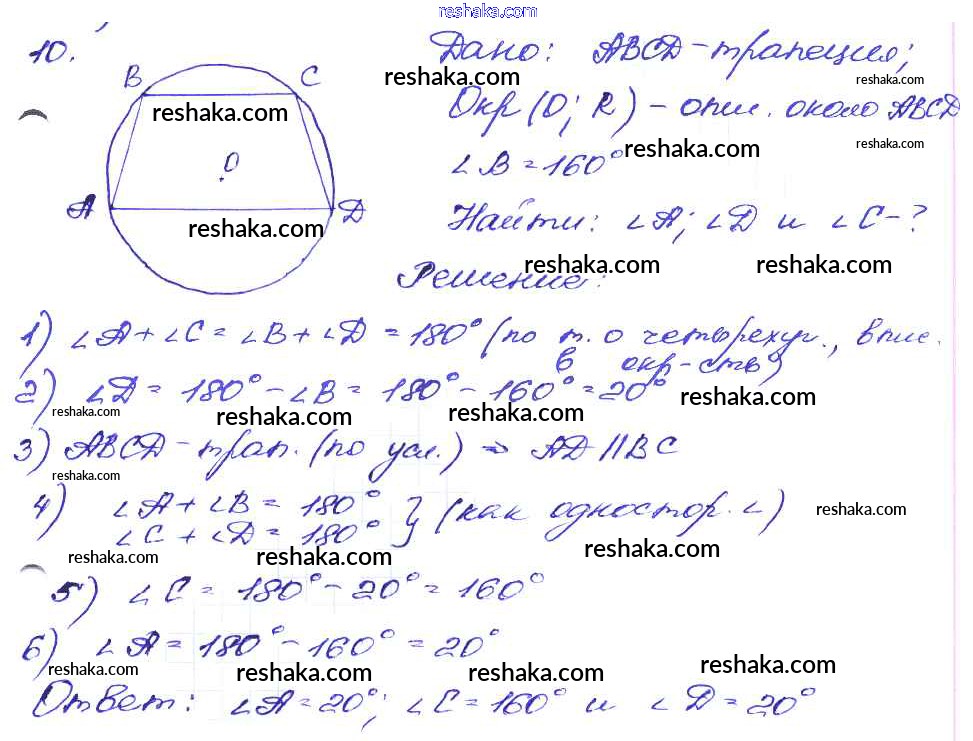 reshaka.com
10.
Дано: ABCD - трапеция;
reshaka.com
reshaka.com
B C
reshaka.com
Окр (O; R) - опис. около ABCD
reshaka.com
∠B = 160°
reshaka.com
O
A D
reshaka.com
Найти: ∠A; ∠D и ∠C - ?
reshaka.com
reshaka.com
Решение:
1) ∠A + ∠C = ∠B + ∠D = 180° (по т. о четырехуг., впис.
в окр-сть)
2) ∠D = 180° - ∠B = 180° - 160° = 20°
reshaka.com
reshaka.com
reshaka.com
reshaka.com
3) ABCD - трап. (по усл.) ⇒ AD || BC
reshaka.com
4) ∠A + ∠B = 180°
∠C + ∠D = 180° } (как одностор. ∠)
reshaka.com
reshaka.com
reshaka.com
reshaka.com
5) ∠C = 180° - 20° = 160°
6) ∠A = 180° - 160° = 20°
reshaka.com
reshaka.com
reshaka.com
reshaka.com
Ответ: ∠A = 20°; ∠C = 160° и ∠D = 20°